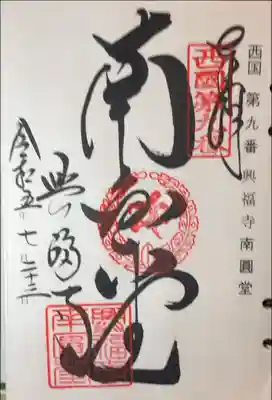 西国 第九番 興福寺 南圓堂
奉拝
西國第九番
南圓堂
興福寺
令和五年七月二十三日